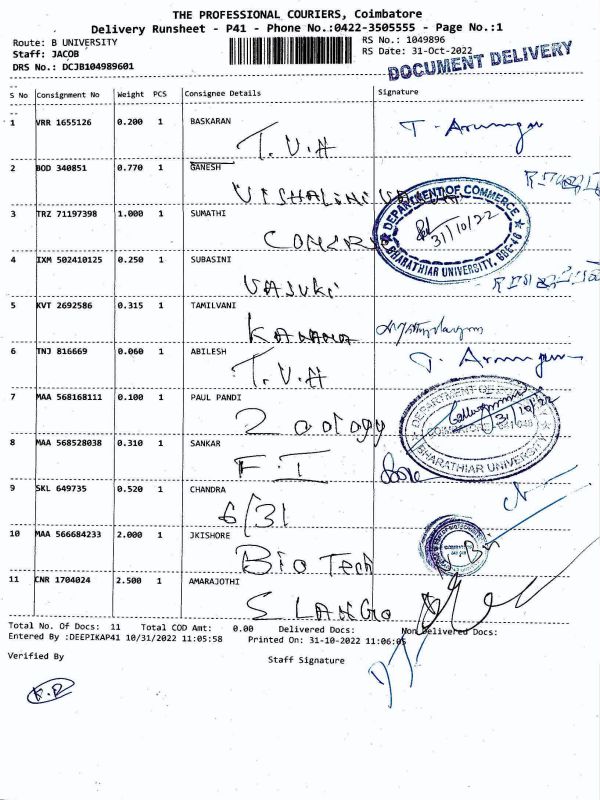 THE PROFESSIONAL COURIERS, Coimbatore
Delivery Runsheet - P41 - Phone No.:0422-3505555 - Page No.:1
Route: B UNIVERSITY
RS No.: 1049896
Staff: JACOB
RS Date: 31-Oct-2022
DRS No.: DCJB104989601
DOCUMENT DELIVERY
S No Consignment No Weight PCS Consignee Details Signature
1 VRR 1655126 0.200 1 BASKARAN
T.V.A T. Arumugam
2 BOD 340851 0.770 1 GANESH
VISHALINI
3 TRZ 71197398 1.000 1 SUMATHI
DEPARTMENT OF COMMERCE
31/10/22
BHARATHIAR UNIVERSITY, CBE-46
4 IXM 502410125 0.250 1 SUBASINI
VASUKI
5 KVT 2692586 0.315 1 TAMILVANI
KANAGA
6 TNJ 816669 0.060 1 ABILESH
T.V.A T. Arumugam
7 MAA 568168111 0.100 1 PAUL PANDI
Zoology
DEPARTMENT OF
31/10/22
COIMBATORE - 641 046
BHARATHIAR UNIVERSITY
8 MAA 568528038 0.310 1 SANKAR
F.I
9 SKL 649735 0.520 1 CHANDRA
6/31
10 MAA 566684233 2.000 1 JKISHORE
Bio Tech
11 CNR 1704024 2.500 1 AMARAJOTHI
S LANGO
Total No. Of Docs: 11 Total COD Amt: 0.00 Delivered Docs: Non Delivered Docs:
Entered By :DEEPIKAP41 10/31/2022 11:05:58 Printed On: 31-10-2022 11:06:05
Verified By Staff Signature